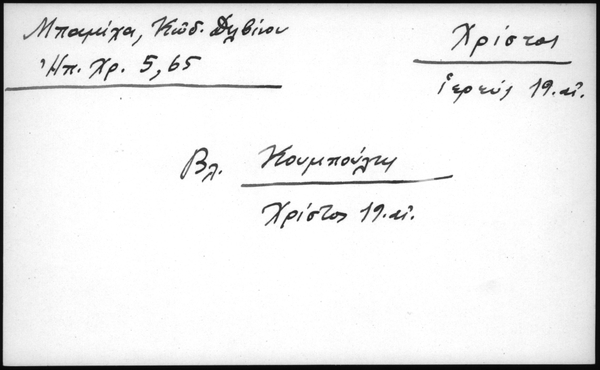 Μπαμίχα, Κώδ. Δελβίνου
Ἠπ. Χρ. 5, 65
Χρίστος
ἱερεύς 19. αἰ.
Βλ. Κουμπούλης
Χρίστος 19. αἰ.